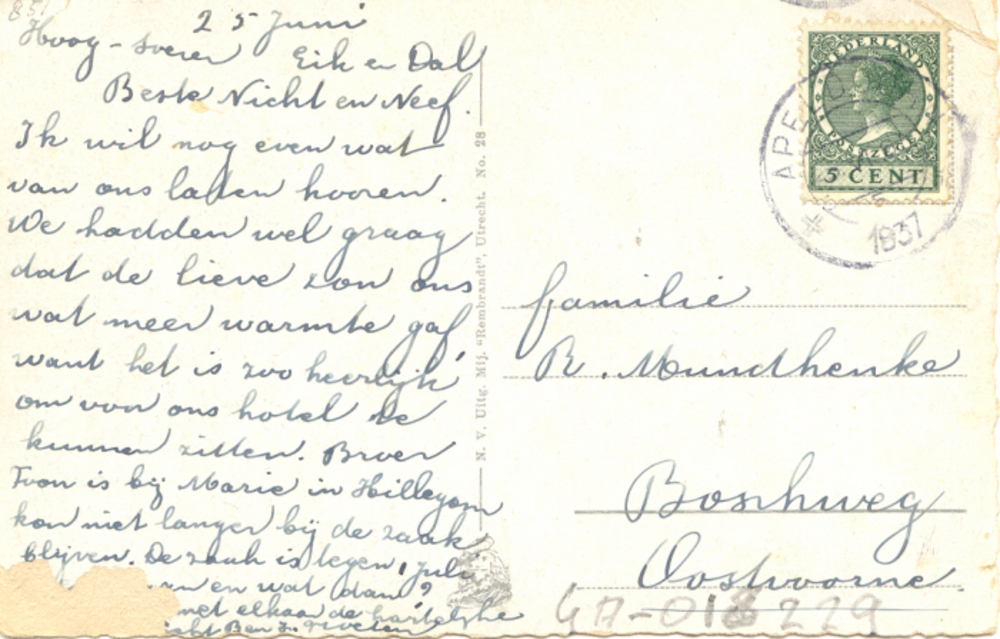 851
25 Juni
Hoog-Soeren Eik en Dal
Beste Nicht en Neef.
Ik wil nog even wat
van ons laten hooren.
We hadden wel graag
dat de lieve zon ons
wat meer warmte gaf
want het is zoo heerlijk
om voor ons hotel te
kunnen zitten. Broer
Toon is bij Marie in Hillegom
kon niet langer bij de zaak
blijven. De zaak is tegen 1 Juli
en wat dan?
met elkaar de hartelijke
N. V. Uitg. Mij. "Rembrandt", Utrecht. No. 28
NEDERLAND
POSTZEGEL
5 CENT
APEL
1937
familie
R. Mundhenke
Boschweg
Oostvoorne
GA-018229